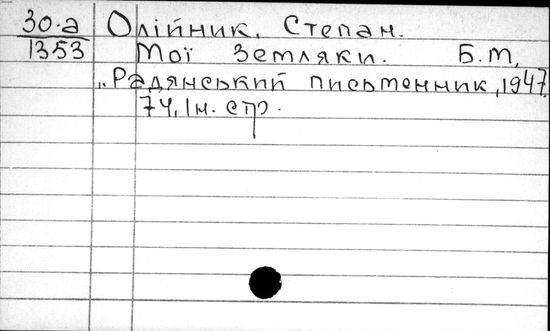 30.а Олійник. Степан.
1353 Мої Земляки. Б.М,
„Радянський письменник, 1947.
74, Ін. стр.